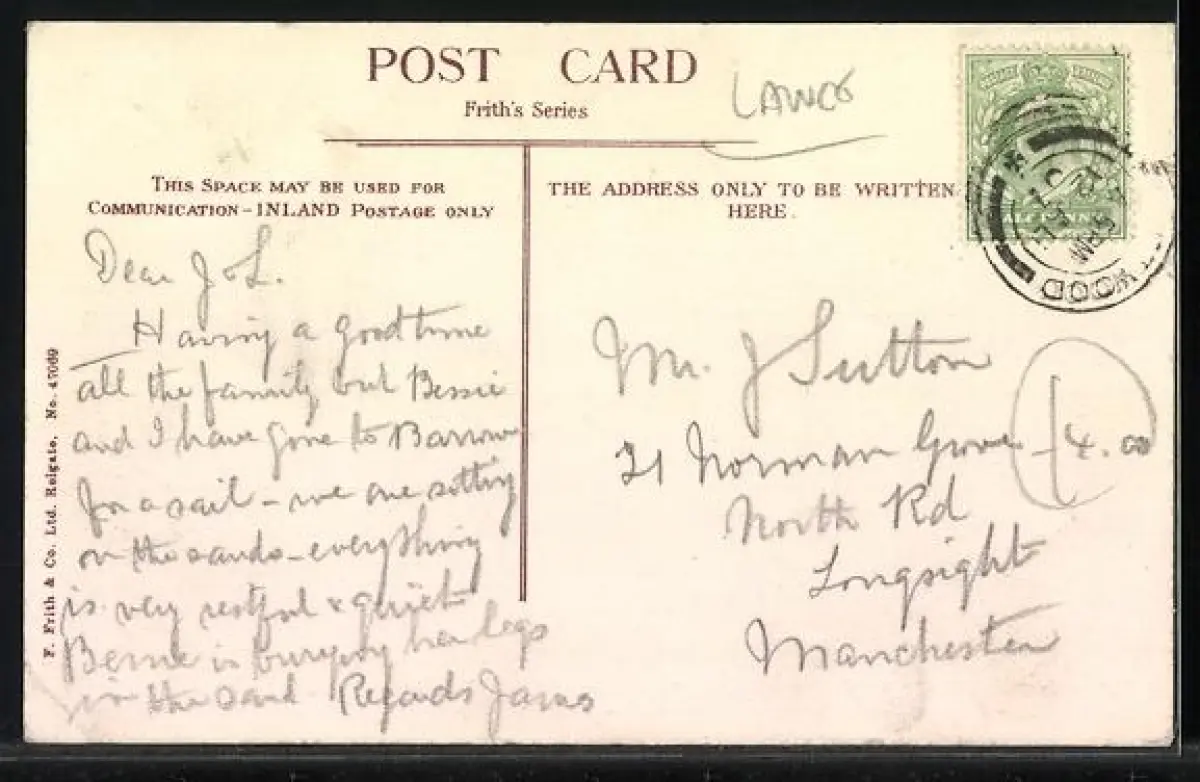 POST CARD
Frith's Series
LANCS
THIS SPACE MAY BE USED FOR
COMMUNICATION - INLAND POSTAGE ONLY
THE ADDRESS ONLY TO BE WRITTEN
HERE.
F. Frith & Co. Ltd. Reigate. No. 47069
Dear J & L.
Having a good time
all the family but Bessie
and I have gone to Barrow
for a sail - we are sitting
on the sands - everything
is very restful & quiet
Bessie is burying her legs
in the sand Regards James
Mr. J Sutton
21 Norman Grove
North Rd
Longsight
Manchester
4.00
WOOD